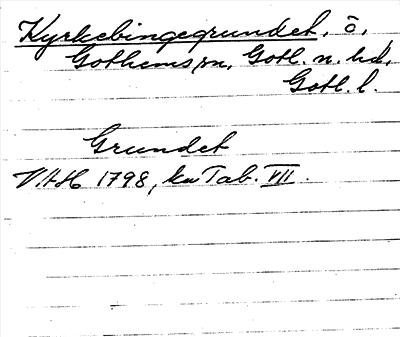 Kyrkebingegrundet, ö,
Gothems sn, Gotl. n. hd,
Gotl. l.
Grundet
VAH 1798, ka Tab. VIII.